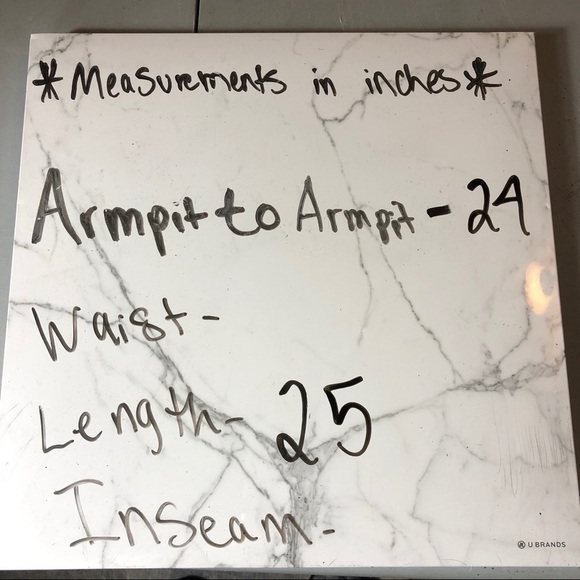 *Measurements in inches*
Armpit to Armpit - 24
Waist -
Length - 25
Inseam -
U BRANDS